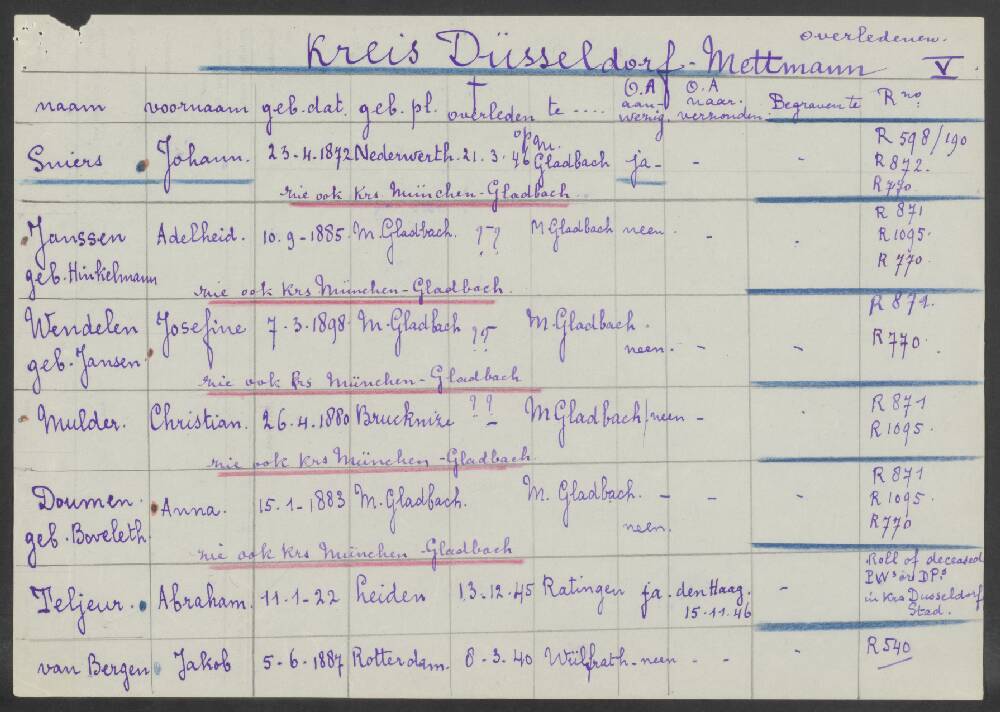 overledenen.
Kreis Düsseldorf-Mettmann V
naam voornaam geb.dat. geb.pl. † overleden op te .... O.A aanwezig O.A naar verzonden. Begraven te R no.
Smiers Johann. 23-4.1872 Nederwerth. 21.3.46 M. Gladbach ja - - - R 598/190
R 872.
R 770
zie ook Krs München-Gladbach.
Janssen Adelheid. 10.9-1885. M.Gladbach. ?-? M Gladbach neen. - - R 871
R 1095.
geb. Hinkelmann R 770.
zie ook Krs München-Gladbach.
Wendelen Josefine 7-3.1898. M-Gladbach ?? M.Gladbach. neen. - - R 871.
geb. Jansen. R 770.
zie ook Krs München-Gladbach
Mulder. Christian. 26.4.1880 Brucknize ? ? - M Gladbach/neen - . R 871
R 1095.
zie ook Krs München-Gladbach.
Doumen Anna. 15.1-1883 M.Gladbach. M. Gladbach. - neen. - - R 871
R 1095.
geb. Boveleth R 770
zie ook Krs München-Gladbach
Teljeur. Abraham. 11.1-22 Leiden 13.12.45 Ratingen ja. den Haag. 15.11.46 - Roll of deceased
PWs and DPs
in Krs Dusseldorf
Stad.
van Bergen Jakob 5-6.1887 Rotterdam. 8-3.40 Wülfrath-neen - - - R 540